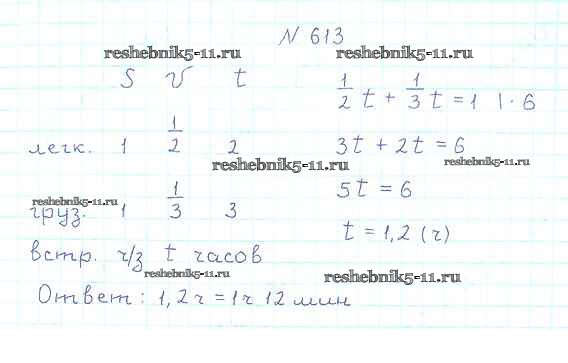 N 613
reshebnik5-11.ru reshebnik5-11.ru
S V t
легк. 1 1/2 2
reshebnik5-11.ru
reshebnik5-11.ru
груз. 1 1/3 3
встр. ч/з t часов
reshebnik5-11.ru
Ответ: 1,2ч = 1ч 12 мин
1/2 t + 1/3 t = 1 | · 6
3t + 2t = 6
reshebnik5-11.ru
5t = 6
t = 1,2 (ч)
reshebnik5-11.ru